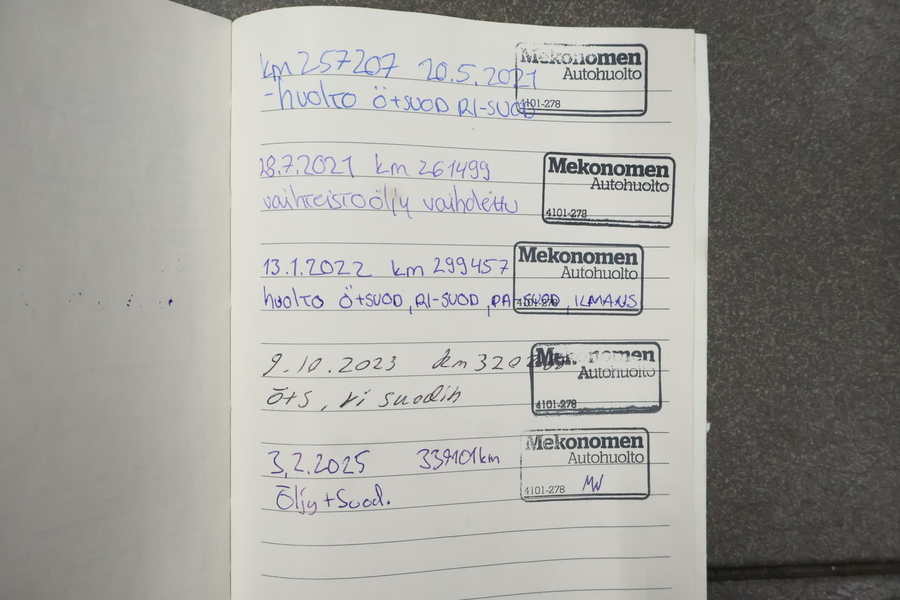 km 257207 20.5.2021 Mekonomen
Autohuolto
-huolto Ö+SUOD RI-SUOD 4101-278
28.7.2021 km 261499 Mekonomen
Autohuolto
vaihteistoöljy vaihdettu 4101-278
13.1.2022 km 299457 Mekonomen
Autohuolto
huolto Ö+SUOD, RI-SUOD, PA-SUOD, ILMANS 4101-278
9.10.2023 km Mekonomen
Autohuolto
ö+s, ri suodin 4101-278
3.2.2025 339101km Mekonomen
Autohuolto
Öljy+Suod. 4101-278 MW